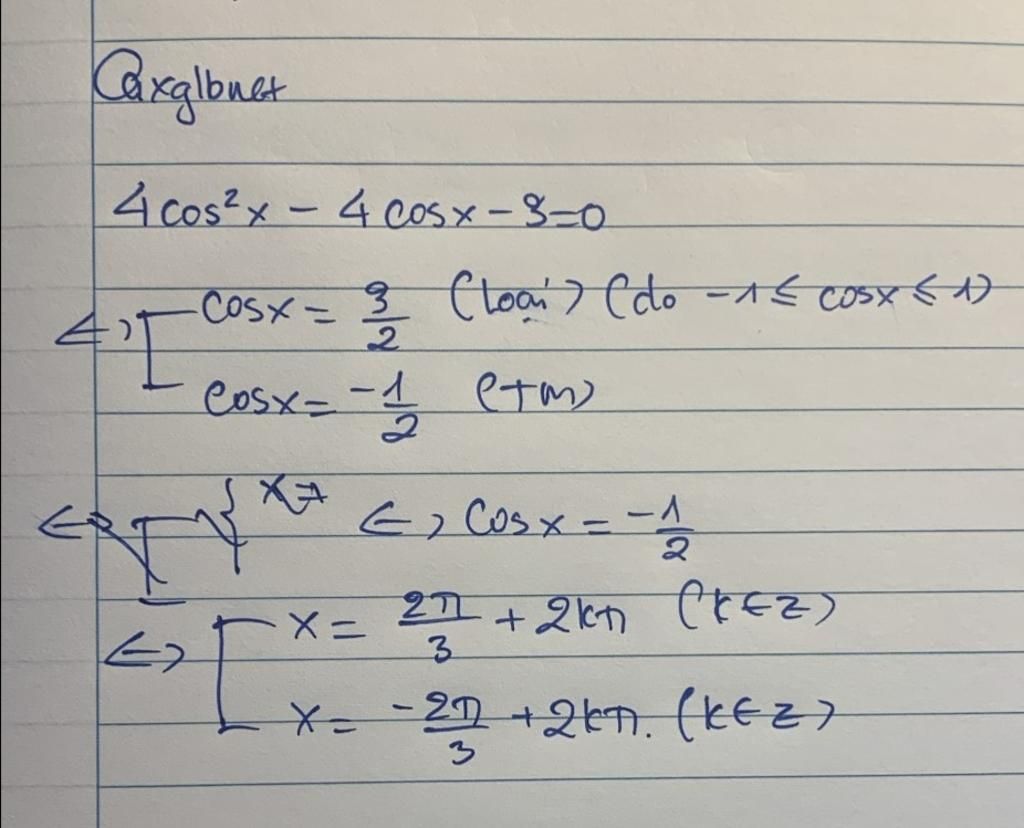 @axglbnet
4cos²x - 4cosx - 3=0
<=> [ cosx = 3/2 (loại) (do -1 ≤ cosx ≤ 1)
cosx = -1/2 (tm)
<=> cosx = -1/2
<=> [ x = 2π/3 + 2kπ (k∈z)
x = -2π/3 + 2kπ. (k∈z)